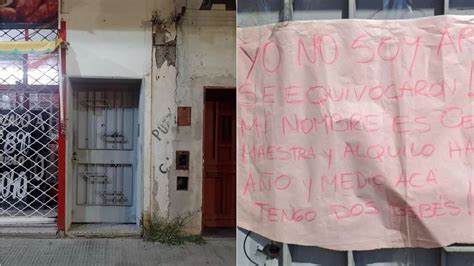 YO NO SOY
SE EQUIVOCARON
MI NOMBRE ES
MAESTRA Y ALQUILO HA
AÑO Y MEDIO ACÁ
TENGO DOS BEBÉS